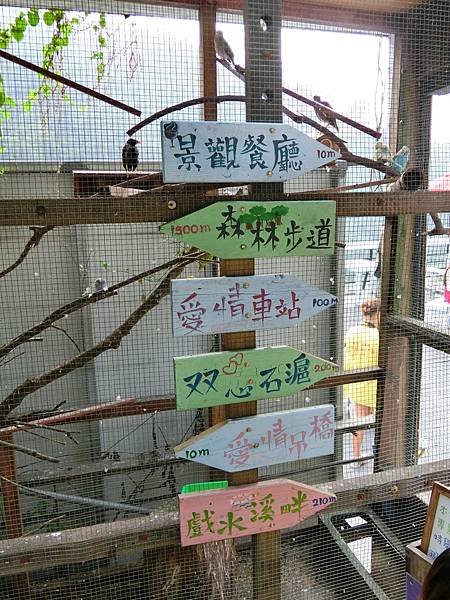 景觀餐廳 10m
1500m 森林步道
愛情車站 100m
双心石滬 200m
10m 愛情吊橋
戲水溪畔 210m